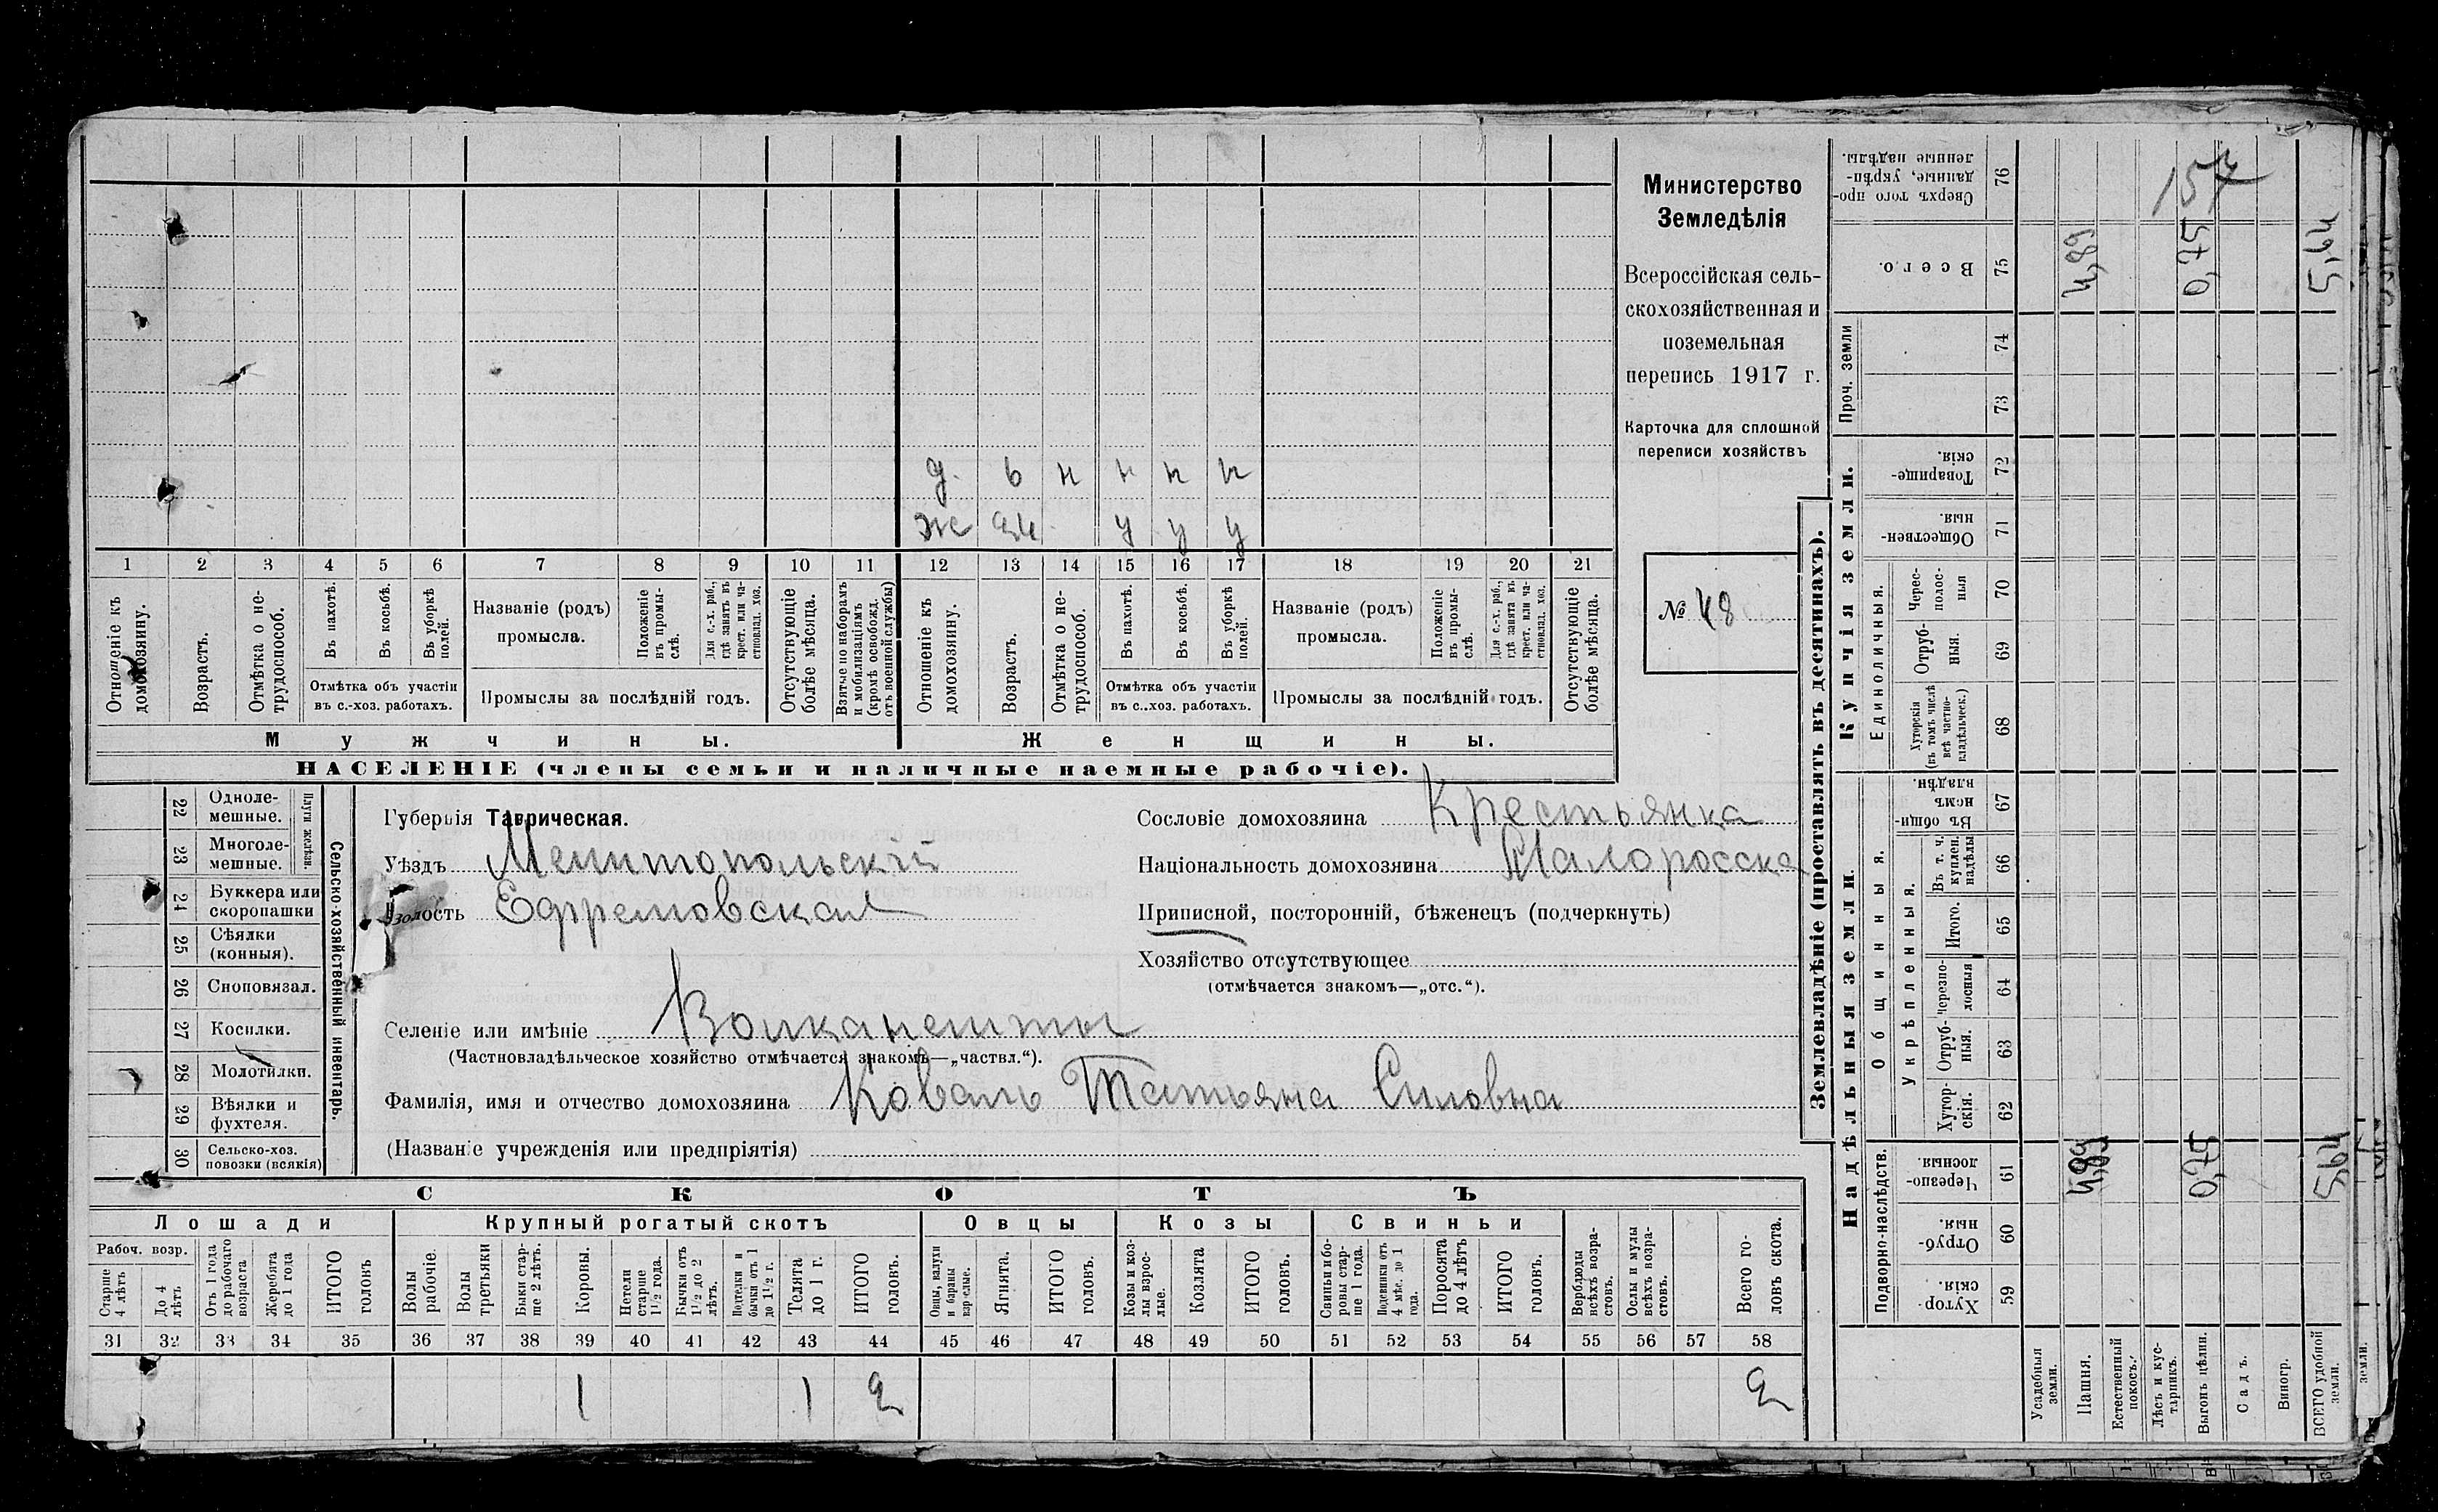 Министерство
Земледѣлія
Всероссійская сель-
скохозяйственная и
поземельная
перепись 1917 г.
Карточка для сплошной
переписи хозяйствъ
№ 48
157
д. 6 н н н н
ж 24 у у у
1 2 3 4 5 6 7 8 9 10 11 12 13 14 15 16 17 18 19 20 21
Отношеніе къ домохозяину.
Возрастъ.
Отмѣтка о не-трудоспособ.
Въ пахотѣ.
Въ косьбѣ.
Въ уборкѣ полей.
Отмѣтка объ участіи
въ с.-хоз. работахъ.
Названіе (родъ)
промысла.
Положеніе въ промы-слѣ.
Для с.-х. раб., гдѣ занятъ въ крест. или ча-стновлад. хоз.
Промыслы за послѣдній годъ.
Отсутствующіе болѣе мѣсяца.
Взятые по наборамъ и мобилизаціямъ (кромѣ освобожд. отъ военной службы)
Отношеніе къ домохозяину.
Возрастъ.
Отмѣтка о не-трудоспособ.
Въ пахотѣ.
Въ косьбѣ.
Въ уборкѣ полей.
Отмѣтка объ участіи
въ с.-хоз. работахъ.
Названіе (родъ)
промысла.
Положеніе въ промы-слѣ.
Для с.-х. раб., гдѣ занята въ крест. или ча-стновлад. хоз.
Промыслы за послѣдній годъ.
Отсутствующіе болѣе мѣсяца.
Мужчины.
Женщины.
НАСЕЛЕНІЕ (члены семьи и наличные наемные рабочіе).
Сельско-хозяйственный инвентарь.
Плуги желѣзн.
22 Одноле-мешные.
23 Многоле-мешные.
24 Буккера или скоропашки
25 Сѣялки (конныя).
26 Сноповязал.
27 Косилки.
28 Молотилки.
29 Вѣялки и фухтеля.
30 Сельско-хоз. повозки (всякія)
Губернія Таврическая.
Уѣздъ Мелитопольскій
Волость Ефремовская
Селеніе или имѣніе Волканешты
(Частновладѣльческое хозяйство отмѣчается знакомъ—„частвл.“).
Фамилія, имя и отчество домохозяина Коваль Татьяна Силовна
(Названіе учрежденія или предпріятія)
Сословіе домохозяина Крестьянка
Національность домохозяина Малоросска
Приписной, посторонній, бѣженецъ (подчеркнуть)
Хозяйство отсутствующее
(отмѣчается знакомъ—„отс.“).
СКОТЪ
Лошади
Крупный рогатый скотъ
Овцы
Козы
Свиньи
Рабоч. возр.
Старше 4 лѣтъ
До 4 лѣтъ
Отъ 1 года до рабочаго возраста
Жеребята до 1 года
ИТОГО головъ
Волы рабочіе.
Волы третьяки
Быки стар-ше 2 лѣтъ.
Коровы.
Нетели старше 1½ года.
Бычки отъ 1½ до 2 лѣтъ.
Подтелки и бычки отъ 1 до 1½ г.
Телята до 1 г.
ИТОГО головъ.
Овцы, валухи и бараны взрослые.
Ягнята.
ИТОГО головъ.
Козы и коз-лы взрос-лые.
Козлята
ИТОГО головъ.
Свиньи и бо-ровы стар-ше 1 года.
Подсвинки отъ 4 мѣс. до 1 года.
Поросята до 4 лѣтъ
ИТОГО головъ.
Верблюды всѣхъ возра-стовъ.
Ослы и мулы всѣхъ возра-стовъ.
Всего го-ловъ скота.
31 32 33 34 35 36 37 38 39 40 41 42 43 44 45 46 47 48 49 50 51 52 53 54 55 56 57 58
1 1 2 2
Землевладѣніе (проставлять въ десятинахъ).
Купчія земли.
Надѣльныя земли.
Проч. земли
Единоличныя.
Общинныя.
Укрѣпленныя.
Подворно-наслѣдств.
Сверхъ того про-данные, укрѣп-ленные надѣлы. 76
Всего. 75
74
73
Товарище-скія. 72
Обществен-ныя. 71
Черес-полос-ныя 70
Отруб-ныя. 69
Хуторскія (въ томъ числѣ всѣ частно-владѣльческ.) 68
Въ общи-номъ владѣн. 67
Въ т. ч. куплен. надѣлы 66
Итого. 65
Черезпо-лосныя 64
Отруб-ныя. 63
Хутор-скія. 62
Черезпо-лосныя. 61
Отруб-ныя. 60
Хутор-скія. 59
4,89 0,75 5,64
4,89 0,75 5,64
Усадебныя земли.
Пашня.
Естественный покосъ.
Лѣсъ и кус-тарникъ.
Выгонъ цѣлин.
Садъ.
Виногр.
ВСЕГО удобной земли.
земли.